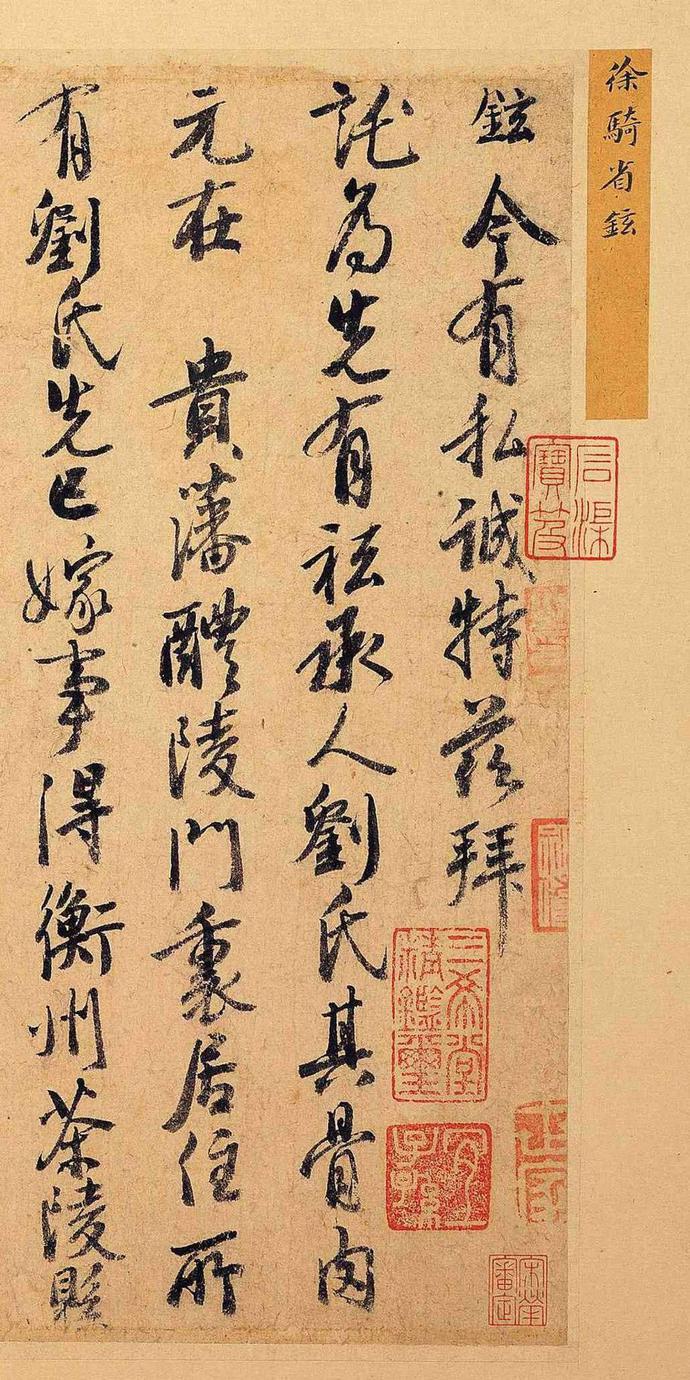 徐騎省鉉
鉉今有私誠特茲拜
託為先有祗承人劉氏其骨肉
元在 貴藩醴陵門裏居住所
有劉氏先已嫁事得衡州茶陵縣
三希堂精鑑璽
宜子孫